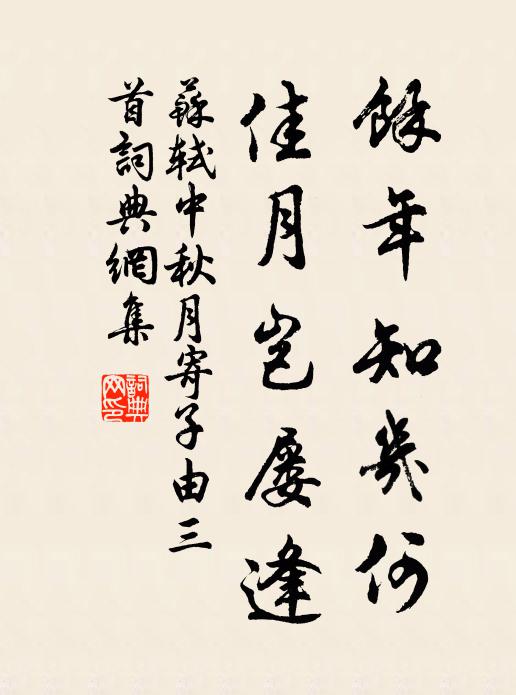 餘年知幾何
佳月豈屢逢
蘇軾中秋月寄子由三
首詞典網集
詞典
网印